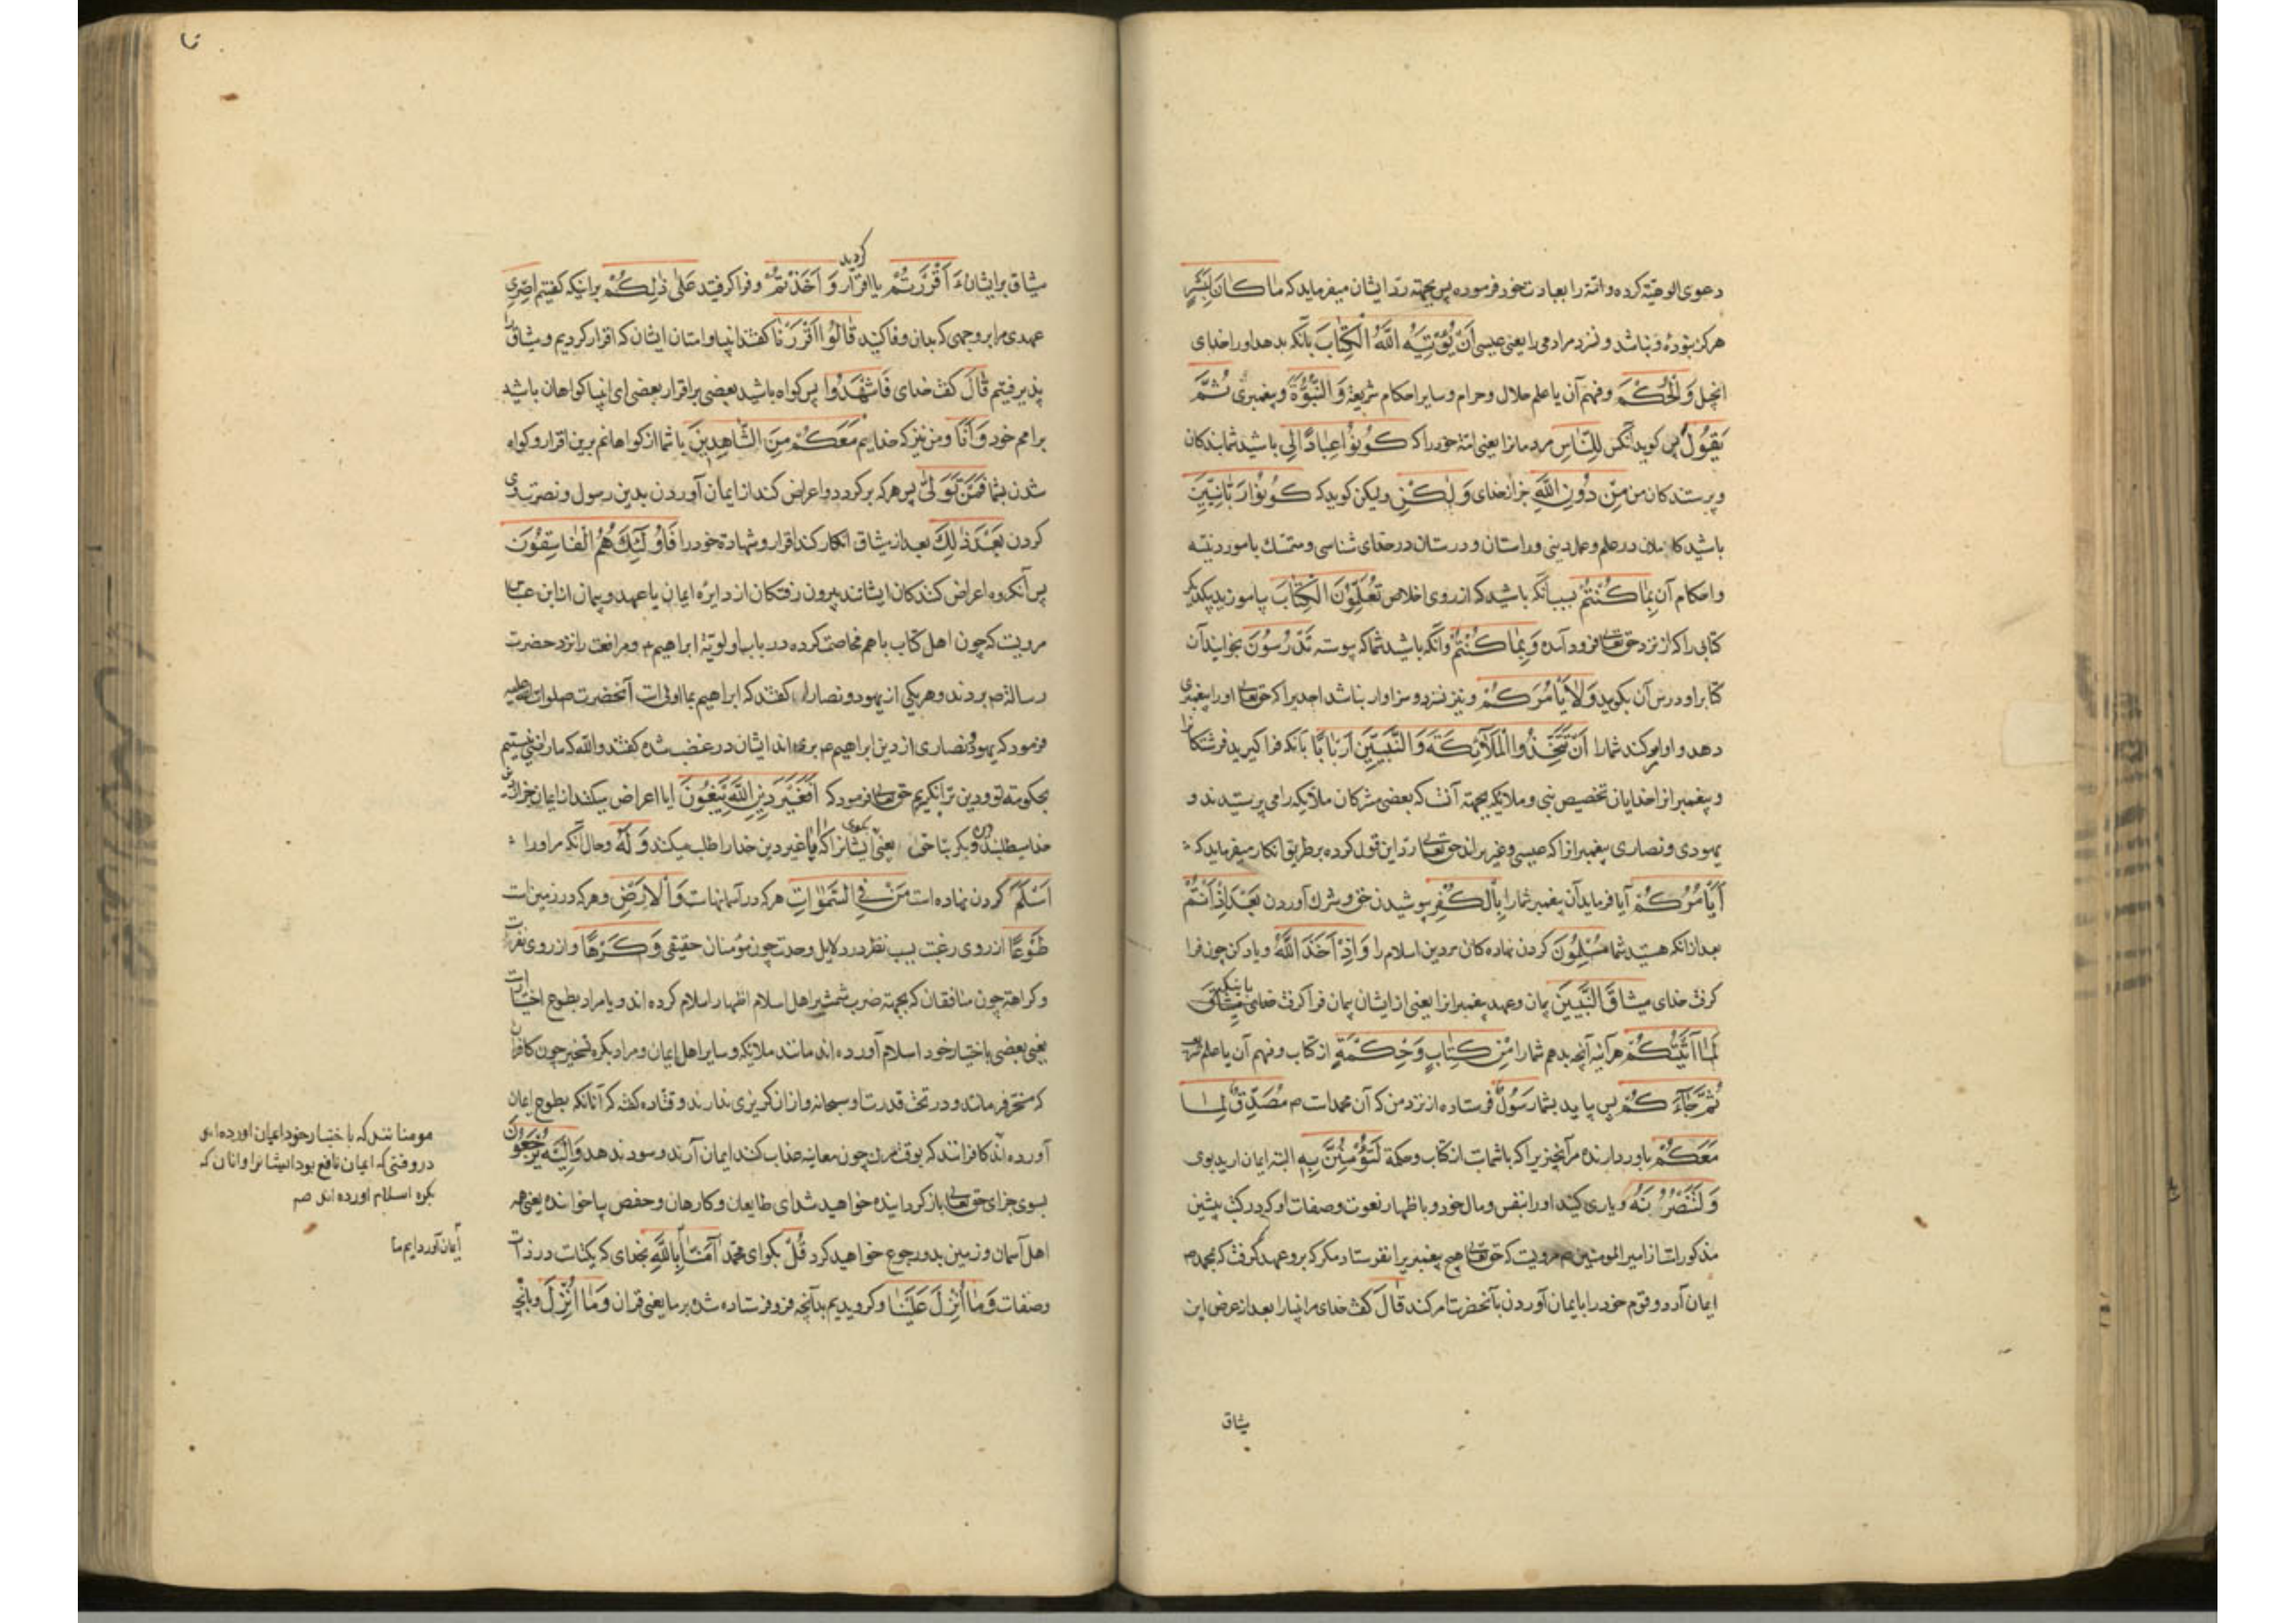 دعوی الوهیّة کرده و امّة را بعبادت خود فرموده پس بجهته ردّ ایشان میفرماید که مَا كَانَ لِبَشَرٍ
هرکز نبوده و نباشد و نسزد مرادمی را یعنی عیسی اَنْ يُؤْتِيَهُ اللّهُ الْكِتَابَ بآنکه بدهد او را خدای
انجیل وَالْحُكْمَ و فهم آن یا علم حلال و حرام و سایر احکام شریعة وَالنُّبُوَّةَ و پیغمبری ثُمَّ
يَقُولَ پس کوید آنکس لِلنَّاسِ مردمانرا یعنی امّة خود را که كُونُوا عِبَادًا لِي باشید شما بندکان
و پرستندکان من مِنْ دُونِ اللّهِ جز از خدای وَلٰكِنْ و لیکن کوید که كُونُوا رَبَّانِيّٖنَ
باشید کاملان در علم و عمل دینی و راستان و درستان در خدای شناسی و متمسّک بامور دنیّه
و احکام آن بِمَا كُنْتُمْ بسبب آنکه باشید که از روی اخلاص تُعَلِّمُونَ الْكِتَابَ بیاموزید بیکدیکر
کتابی را که از نزد حق تعالی فرود آمده وَبِمَا كُنْتُمْ و آنکه باشید شما که پیوسته تَدْرُسُونَ بخوانید آن
کتابرا و درس آن بکوید وَلَا يَأْمُرَكُمْ و نیز نسزد و سزاوار نباشد احدیرا که حق تعالی او را پیغمبری
دهد و او امر کند شما را اَنْ تَتَّخِذُوا الْمَلٰٓئِكَةَ وَالنَّبِيّٖنَ اَرْبَابًا بآنکه فرا کیرید فرشتکانرا
و پیغمبرانرا خدایان تخصیص نبی و ملائکه بجهته آنست که بعضی مشرکان ملائکه را می پرستیدند و
یهودی و نصاری پیغمبرانرا که عیسی و عزیر اند حق تعالی ردّ این قول کرده بر طریق انکار میفرماید که
اَيَأْمُرُكُمْ آیا فرماید آن پیغمبر شما را بِالْكُفْرِ بپوشیدن حق و شرک آوردن بَعْدَ اِذْ اَنْتُمْ
بعد از آنکه هستید شما مُسْلِمُونَ کردن نهاده کان مر دین اسلام را وَاِذْ اَخَذَ اللّهُ و یاد کن چون فرا
کرفت خدای مِيثَاقَ النَّبِيّٖنَ پیمان و عهد پیغمبرانرا یعنی از ایشان پیمان فرا کرفت خدای
لَمَا اٰتَيْتُكُمْ هر آینه آنچه بدهم شما را مِنْ كِتَابٍ وَحِكْمَةٍ از کتاب و فهم آن یا علم شریعت
ثُمَّ جَٓاءَكُمْ پس بیاید بشما رَسُولٌ فرستاده از نزد من که آن محمد است م مُصَدِّقٌ لِمَا
مَعَكُمْ باور دارنده مر آنچیزیرا که با شماست از کتاب و حکمة لَتُؤْمِنُنَّ بِهٖ البته ایمان ارید بوی
وَلَتَنْصُرُنَّهُ و یاری کنید او را بنفس و مال خود و باظهار نعوت و صفات او که در کتب پیشین
مذکور است از امیر المومنین م مرویست که حق تعالی هیچ پیغمبریرا نفرستاد مکر که برو عهد کرفت که بمحمد م
ایمان آرد و قوم خود را بایمان آوردن بآنحضرت امر کند قَالَ کفت خدای مر انبیا را بعد از عرض این
میثاق
کردید
میثاق بر ایشان ءَاَقْرَرْتُمْ یا اقرار وَاَخَذْتُمْ و فرا کرفتید عَلٰى ذٰلِكُمْ برانیکه کفتیم اِصْرٖي
عهدی مرا بر وجهی که بدان وفا کنید قَالُوا اَقْرَرْنَا کفتند انبیا و امتان ایشان که اقرار کردیم و میثاق
پذیرفتیم قَالَ کفت خدای فَاشْهَدُوا پس کواه باشید بعضی بر اقرار بعضی ای انبیا کواهان باشید
بر امم خود وَاَنَا و من نیز که خدایم مَعَكُمْ مِنَ الشَّاهِدٖينَ با شما از کواهانم برین اقرار و کواه
شدن شما فَمَنْ تَوَلّٰى پس هر که برکردد و اعراض کند از ایمان آوردن بدین رسول و نصرت
کردن بَعْدَ ذٰلِكَ بعد از میثاق انکار کند اقرار و شهادة خود را فَاُولٰٓئِكَ هُمُ الْفَاسِقُونَ
پس آنکروه اعراض کنندکان ایشانند بیرون رفتکان از دایره ایمان یا عهد و پیمان از ابن عباس
مرویست که چون اهل کتاب با هم مخاصمت کرده در باب اولویّة ابراهیم م و مرافعت را نزد حضرت
رسالة م بردند و هر یکی از یهود و نصارا کفتند که ابراهیم بما اولی است آنحضرت صلوات الله علیه
فرمود که یهود و نصاری از دین ابراهیم م بری اند ایشان در غضب شده کفتند والله که ما راضی نیستیم
بحکومته تو و دین ترا نکیریم حق تعالی فرمود که اَفَغَيْرَ دٖينِ اللّهِ يَبْغُونَ ایا اعراض میکنند از ایمان
خدا میطلبند یعنی ایشانرا که غیر دین خدا را طلب میکنند وَلَهُ و حال آنکه مر او را
اَسْلَمَ کردن نهاده است مَنْ فِي السَّمٰوَاتِ هر که در آسمانهاست وَالْاَرْضِ و هر که در زمین است
طَوْعًا از روی رغبت بسبب نظر در دلایل وحدت چون مؤمنان حقیقی وَكَرْهًا و از روی نفرت
و کراهة چون منافقان که بجهته ضرب شمشیر اهل اسلام اظهار اسلام کرده اند و یا مراد بطوع اختیار است
یعنی بعضی باختیار خود اسلام آورده اند مانند ملائکه و سایر اهل ایمان و مراد بکره تسخیر چون کافران
که مسخّر فرمانند و در تحت قدرت او سبحانه و از ان کریزی ندارند و قتاده کفته که آنانکه بطوع ایمان
آورده اند کافرانند که چون معاینه عذاب کنند ایمان آرند و سود ندهد وَاِلَيْهِ يُرْجَعُونَ
بسوی جزای حق تعالی باز کردانیده خواهید شد ای طایعان و کارهان و حفص بیا خوانده یعنی همه
اهل آسمان و زمین بدو رجوع خواهید کرد قُلْ بکو ای محمّد اٰمَنَّا بِاللّهِ بخدای که یکتاست در ذات
و صفات وَمَا اُنْزِلَ عَلَيْنَا و کرویدیم بدآنچه فرو فرستاده شده بر ما یعنی قران وَمَا اُنْزِلَ و بآنچه
مومنانند که باختیار خود ایمان اورده اند
در وقتی که ایمان نافع بود ایشانرا و انان که
بکره اسلام اورده اند
ایمان آوردایم ما